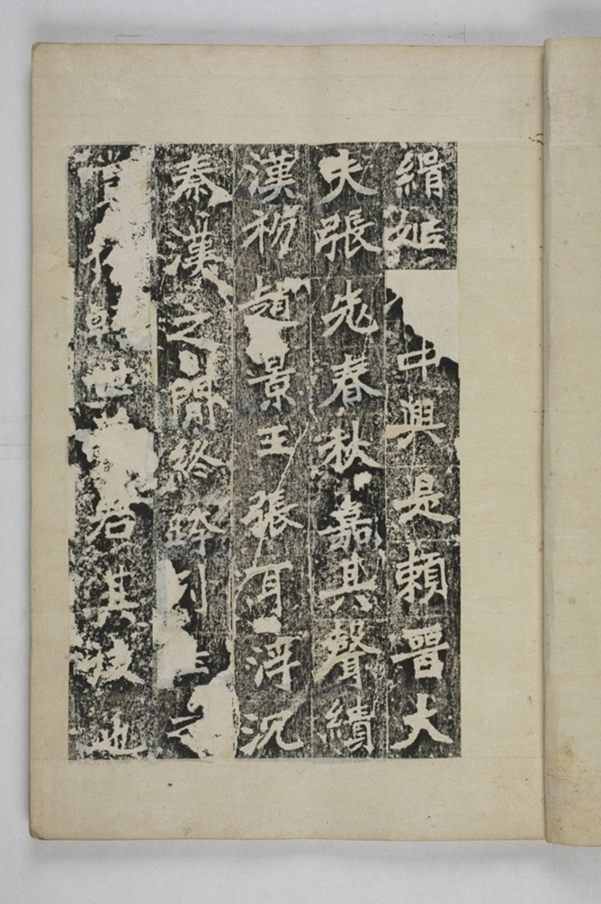 緝姬中興是賴晉大
夫張老春秋嘉其聲績
漢初趙景王張耳浮沉
秦漢之閒終跨列土之
世君其後也